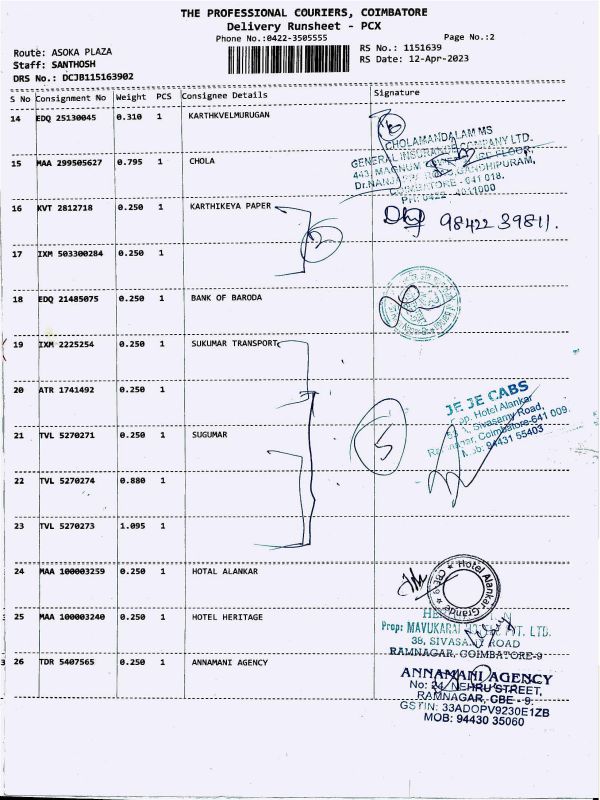 THE PROFESSIONAL COURIERS, COIMBATORE
Delivery Runsheet - PCX
Phone No.:0422-3505555
Page No.:2
Route: ASOKA PLAZA
RS No.: 1151639
Staff: SANTHOSH
RS Date: 12-Apr-2023
DRS No.: DCJB115163902
S No Consignment No Weight PCS Consignee Details Signature
14 EDQ 25130045 0.310 1 KARTHKVELMURUGAN
15 MAA 299505627 0.795 1 CHOLA
CHOLAMANDALAM MS
GENERAL INSURANCE COMPANY LTD.
FLOOR,
GANDHIPURAM,
COIMBATORE - 641 018.
16 KVT 2812718 0.250 1 KARTHIKEYA PAPER
2
98422 39811.
17 IXM 503300284 0.250 1
18 EDQ 21485075 0.250 1 BANK OF BARODA
19 IXM 2225254 0.250 1 SUKUMAR TRANSPORT
20 ATR 1741492 0.250 1
5
JE JE CABS
Hotel Alankar
Sivasamy Road,
Coimbatore-641 009.
94431 55403
21 TVL 5270271 0.250 1 SUGUMAR
22 TVL 5270274 0.880 1
23 TVL 5270273 1.095 1
24 MAA 100003259 0.250 1 HOTAL ALANKAR
Hotel Alankar Grande
CBE-9
25 MAA 100003240 0.250 1 HOTEL HERITAGE
Prop: MAVUKARAI PVT. LTD.
38, SIVASAMY ROAD
RAMNAGAR, COIMBATORE-9
26 TDR 5407565 0.250 1 ANNAMANI AGENCY
ANNAMANI AGENCY
No: 24, NEHRU STREET,
RAMNAGAR, CBE - 9.
GSTIN: 33ADOPV9230E1ZB
MOB: 94430 35060